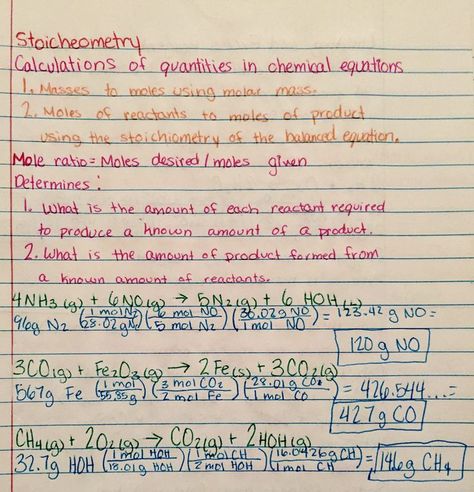 Stoicheometry
Calculations of quantities in chemical equations
1. Masses to moles using molar mass.
2. Moles of reactants to moles of product
using the stoichiometry of the balanced equation.
Mole ratio = Moles desired / moles given
Determines:
1. What is the amount of each reactant required
to produce a known amount of a product.
2. What is the amount of product formed from
a known amount of reactants.
4NH3(g) + 6NO(g) → 5N2(g) + 6 HOH
96g N2 (1 mol N2 / 28.02g N2)(6 mol NO / 5 mol N2)(30.02g NO / 1 mol NO) = 123.42 g NO =
120 g NO
3CO(g) + Fe2O3(g) → 2Fe(s) + 3CO2(g)
567g Fe (1 mol / 55.85g)(3 mol CO2 / 2 mol Fe)(28.01g / 1 mol CO) = 426.544... =
427g CO
CH4(g) + 2O2(g) → CO2(g) + 2HOH(g)
32.7g HOH (1 mol HOH / 18.01g HOH)(1 mol CH / 2 mol HOH)(16.0426g CH / 1 mol CH) = 14.6g CH4